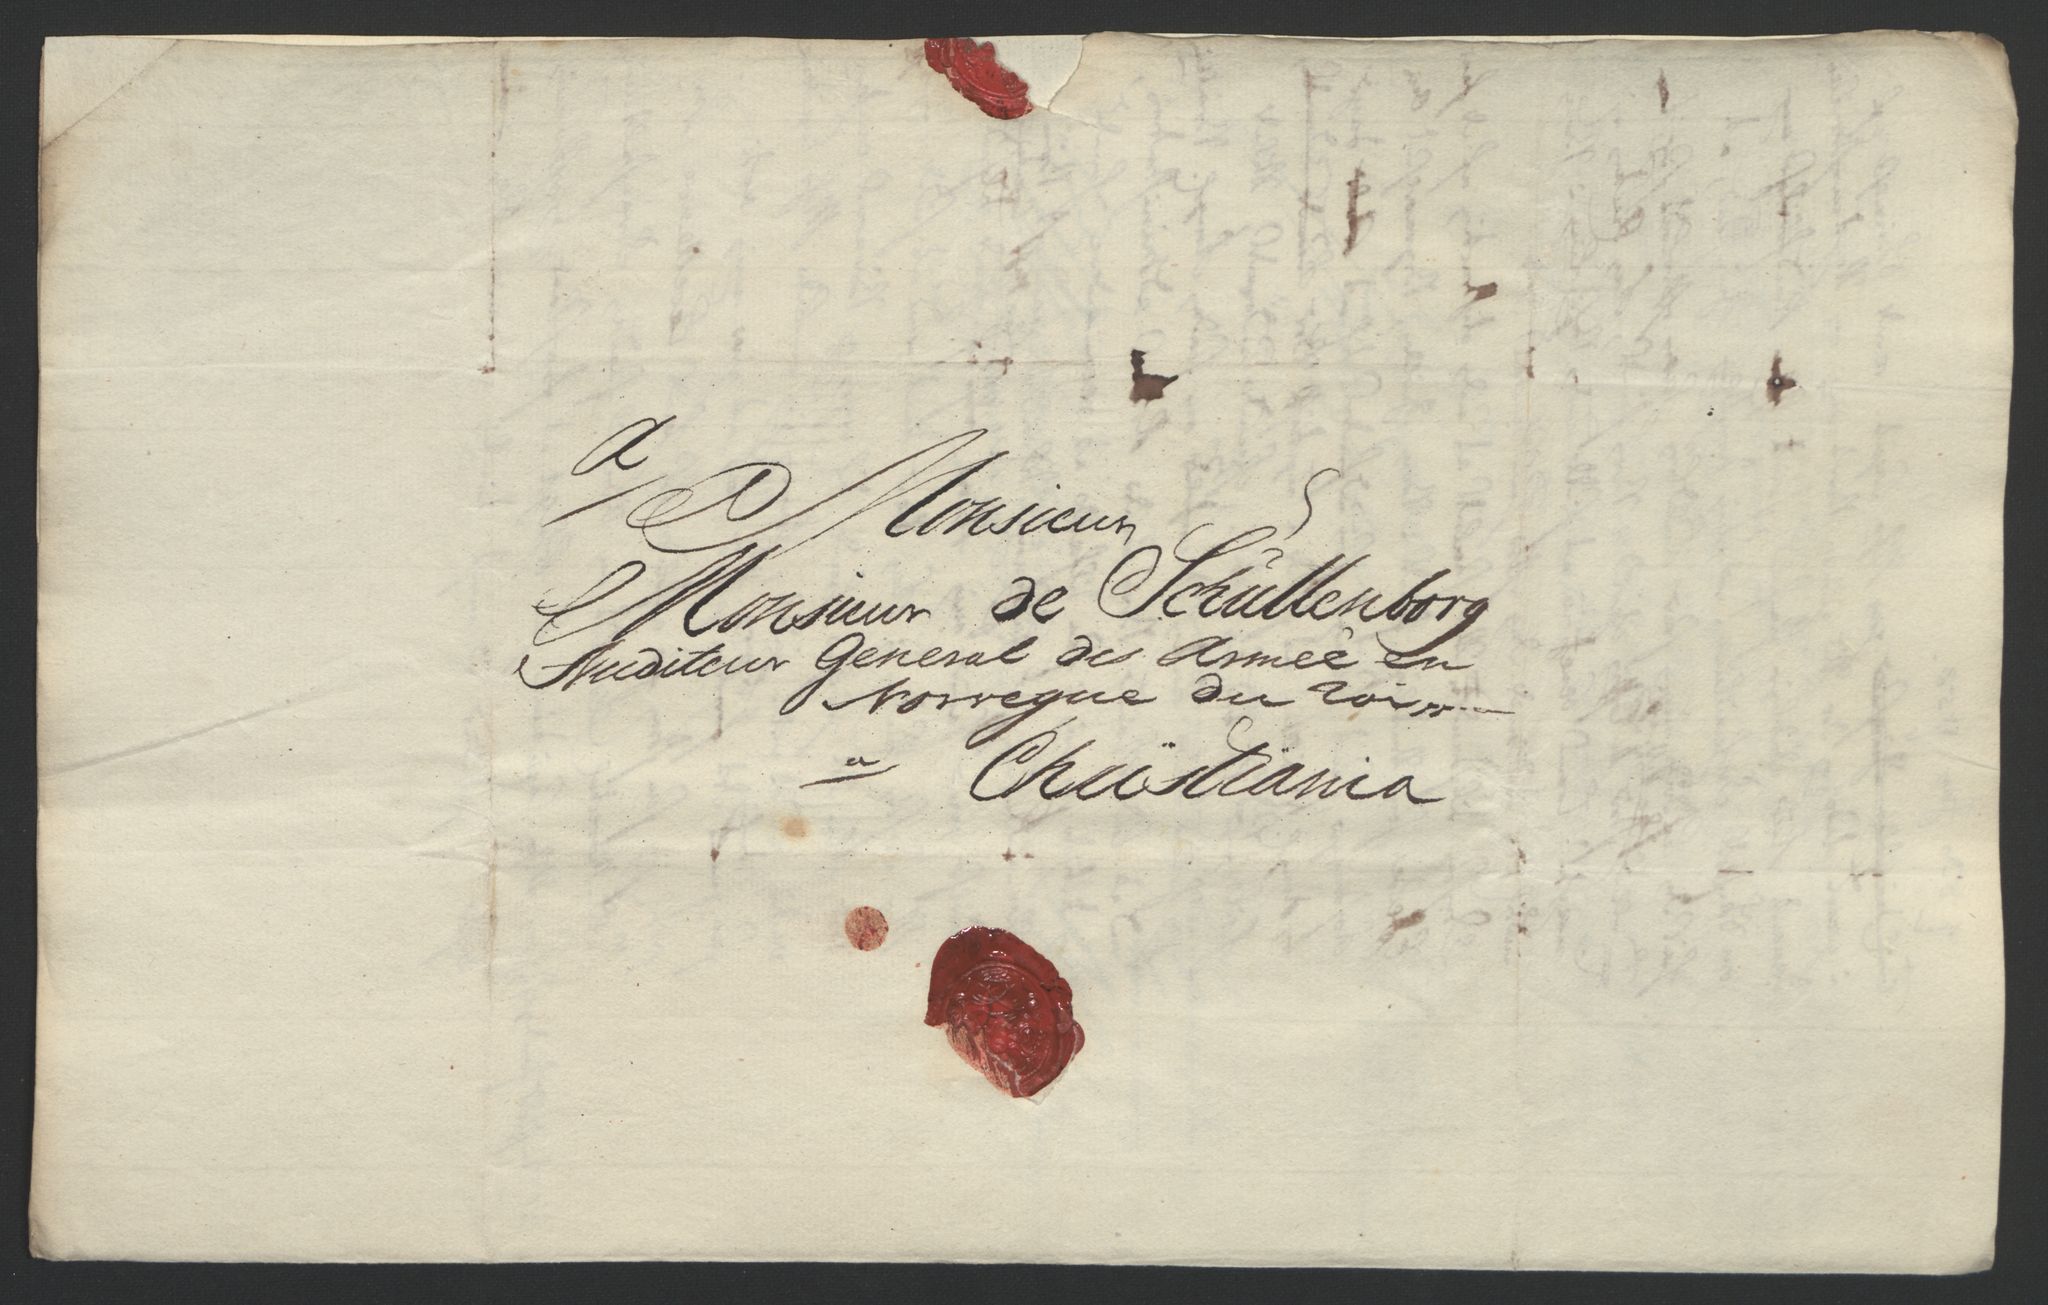 a
Monsieur
Monsieur de Schullenborg
Auditeur General des Armeé en
Norvegue du roi
a Christiania